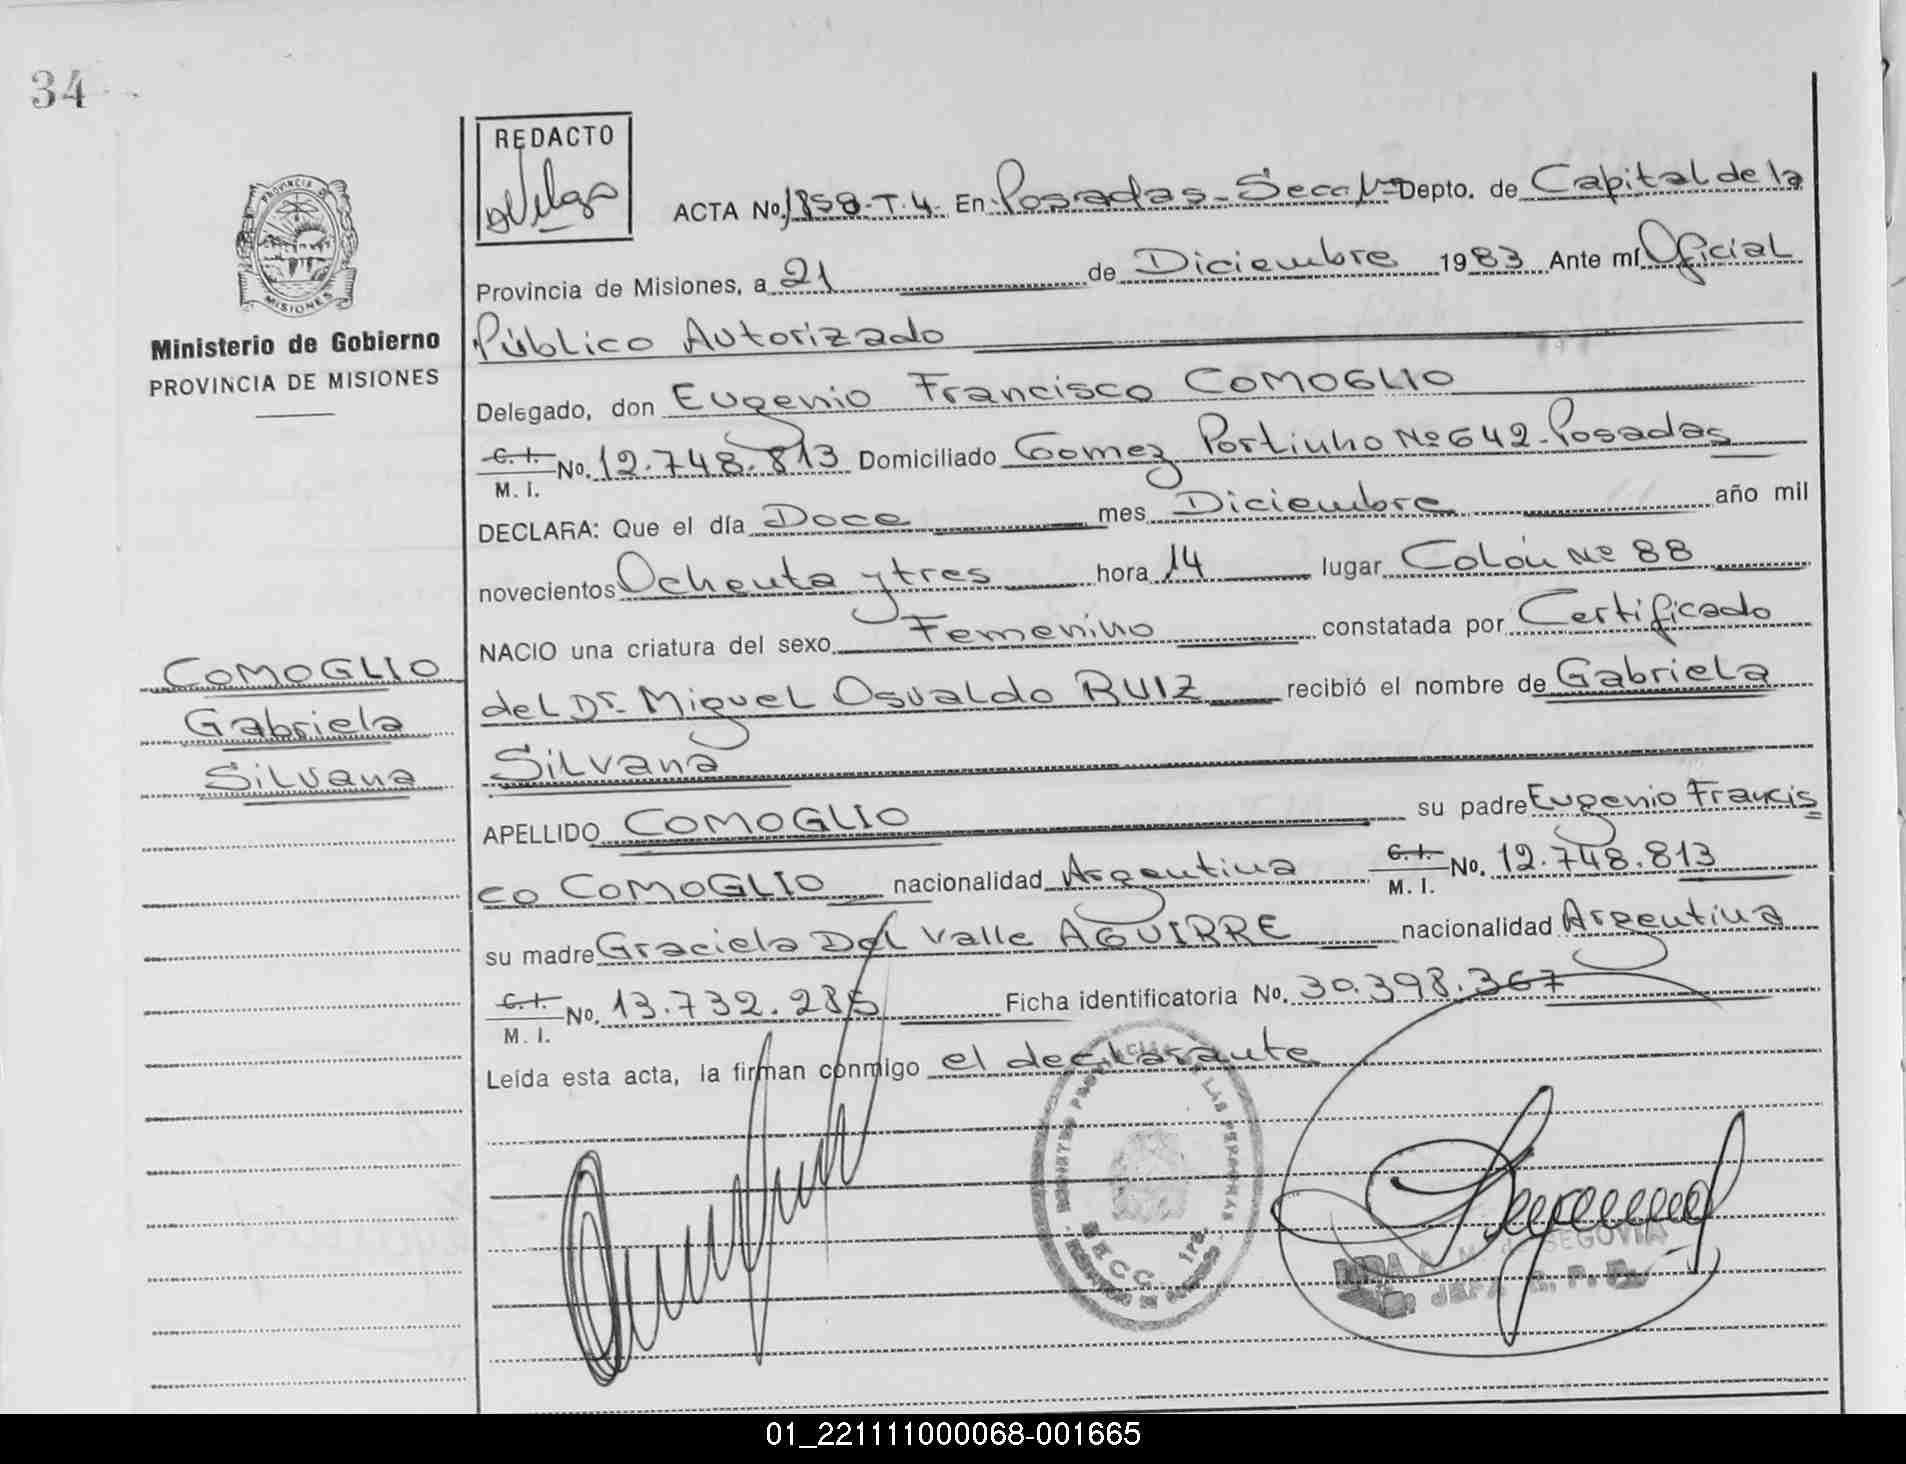 34
REDACTO
PROVINCIA DE
MISIONES
ACTA No. 1858-T.4. En Posadas-Secc 1ª Depto. de Capital de la
Provincia de Misiones, a 21 de Diciembre 1983 Ante mí Oficial
Ministerio de Gobierno
PROVINCIA DE MISIONES
Público Autorizado
Delegado, don Eugenio Francisco COMOGLIO
C. I.
M. I. No. 12.748.813 Domiciliado Gomez Portinho Nº 642-Posadas
DECLARA: Que el día Doce mes Diciembre año mil
novecientos Ochenta y tres hora 14 lugar Colón Nº 88
NACIO una criatura del sexo Femenino constatada por Certificado
COMOGLIO
Gabriela
Silvana
del Dr. Miguel Osvaldo RUIZ recibió el nombre de Gabriela
Silvana
APELLIDO COMOGLIO su padre Eugenio Francis
co COMOGLIO nacionalidad Argentina C. I.
M. I. No. 12.748.813
su madre Graciela Del Valle AGUIRRE nacionalidad Argentina
C. I.
M. I. No. 13.732.285 Ficha identificatoria No. 30.398.367
Leída esta acta, la firman conmigo el declarante
SEGOVIA
JEFA
01_221111000068-001665